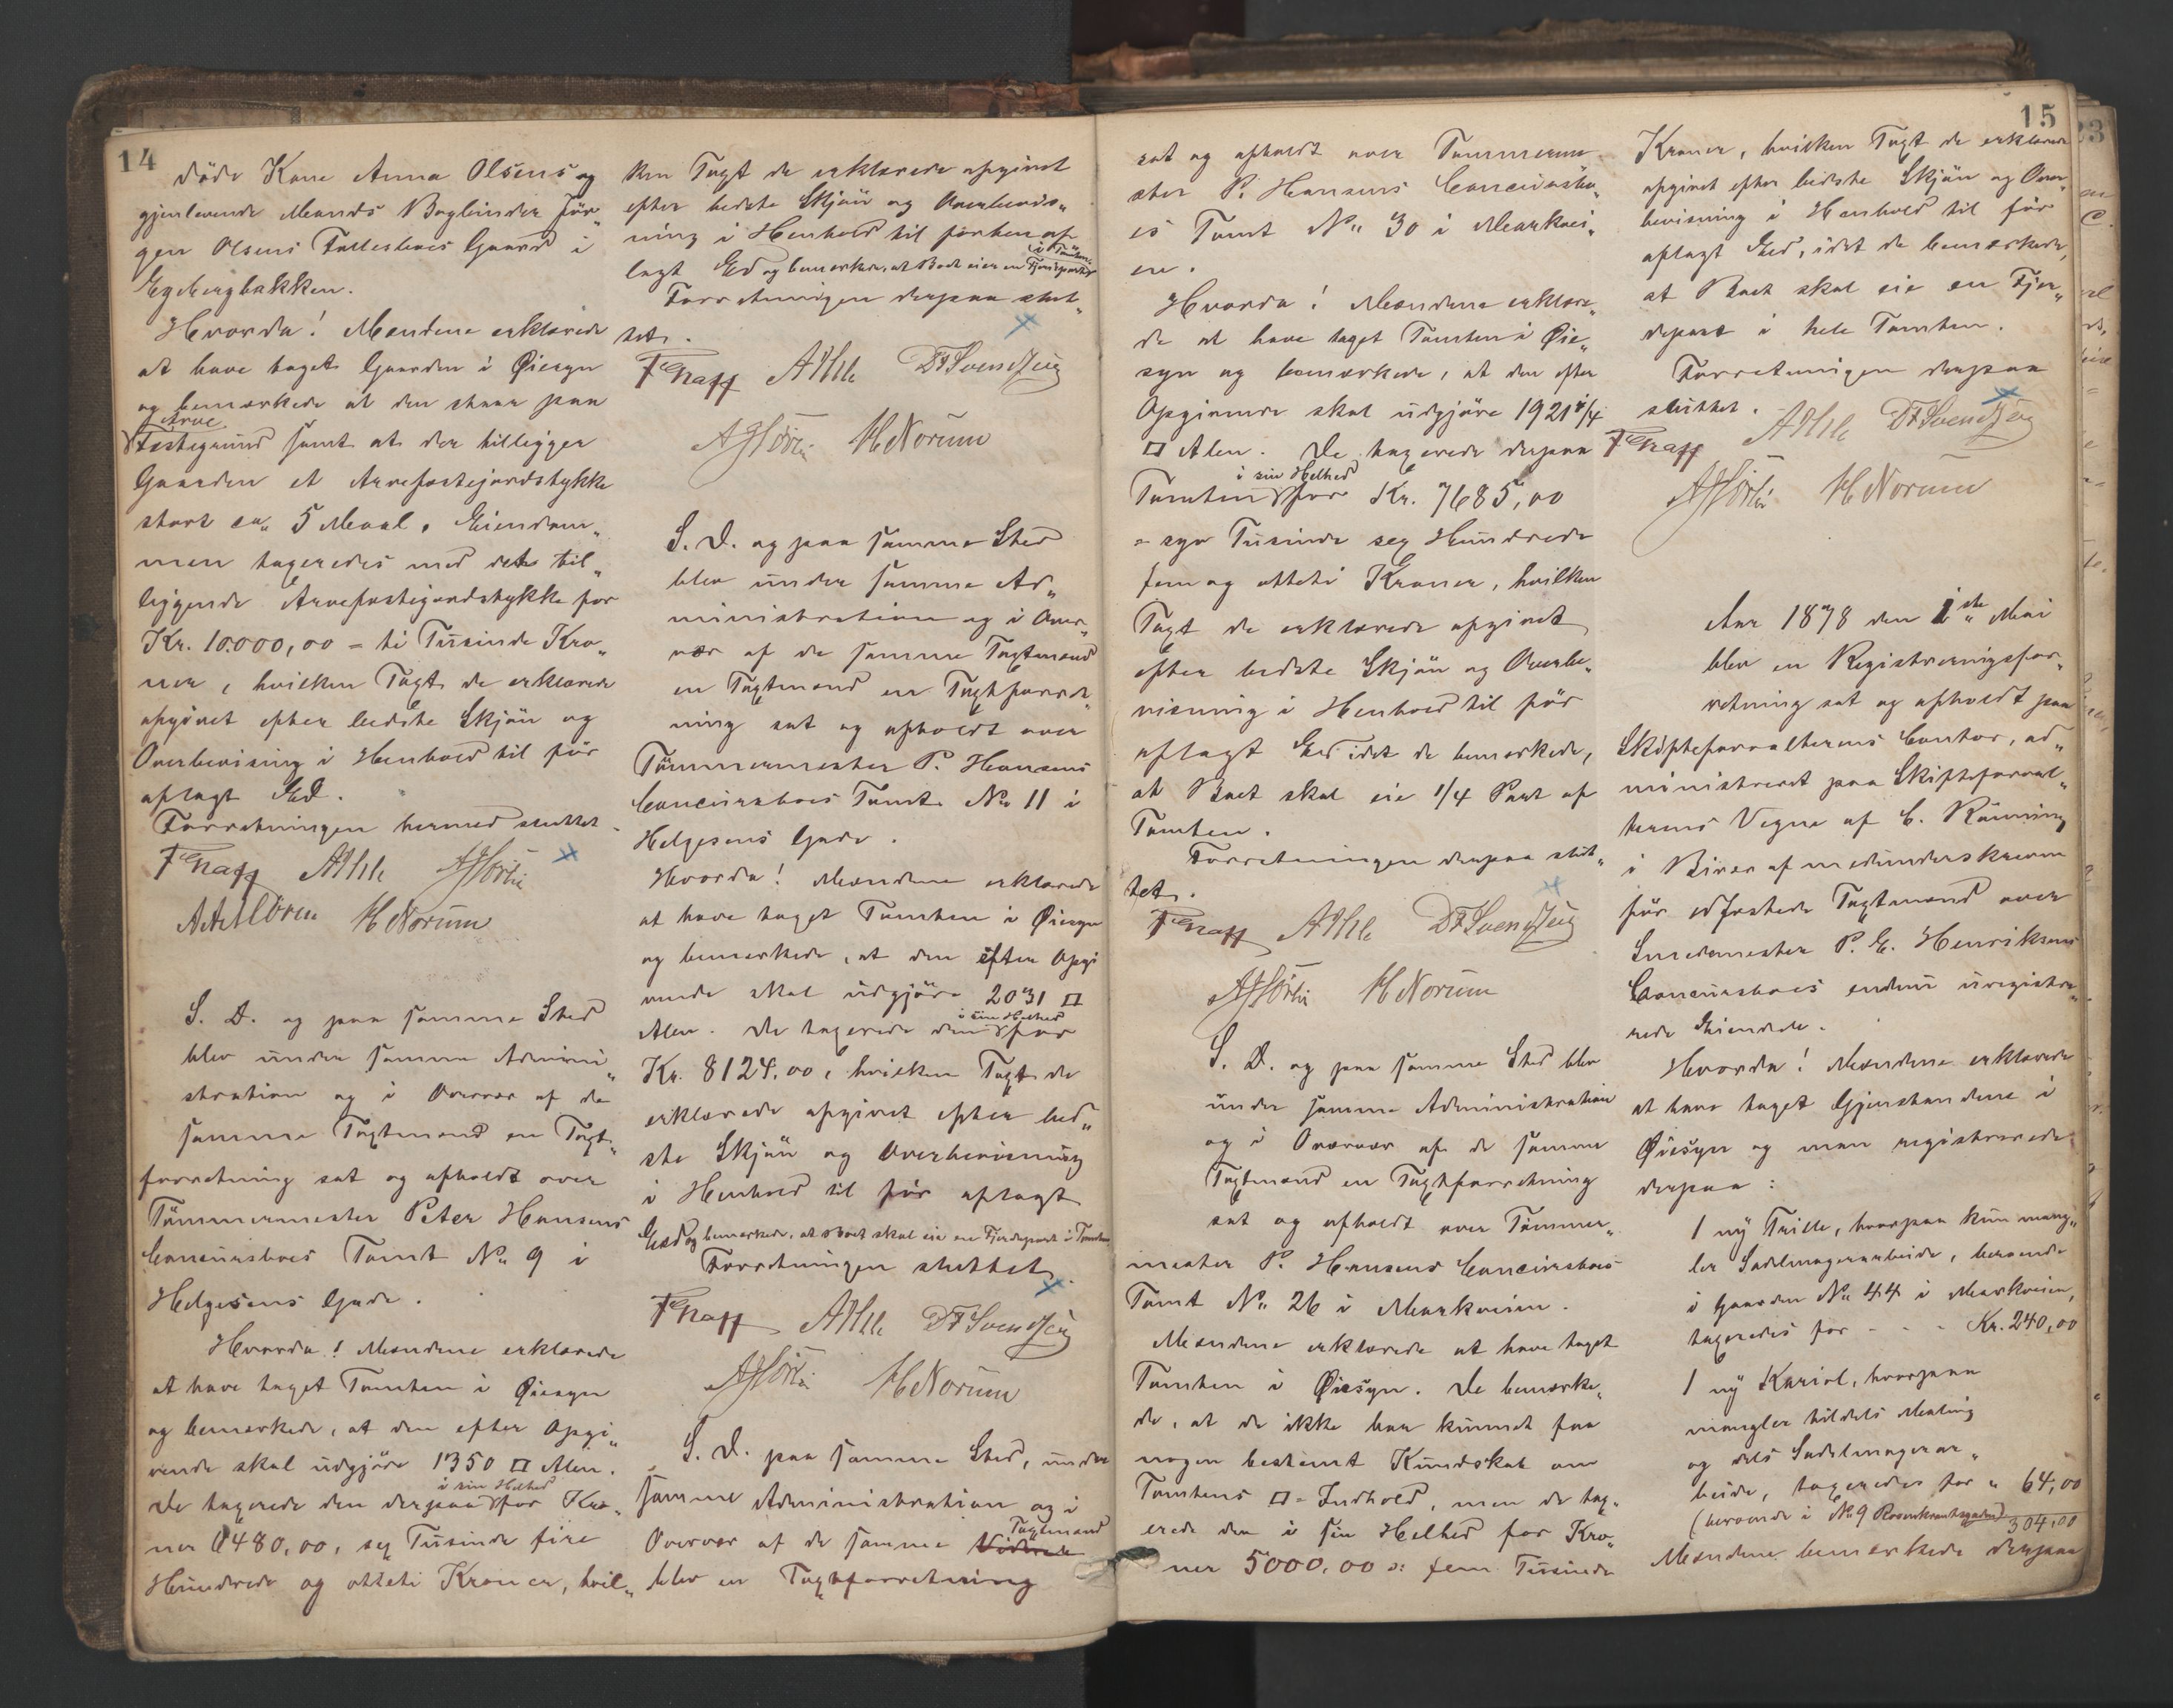 14
døde Kone Anna Olsens og
gjenlevende Mands Bogbinder Jör„
gen Olsens Fællesboes Gaard i
Egebergbakken.
Hvorda! Mændene erklærede
at have taget Gaarden i Øiesyn
og bemærkede at den staar paa
Arve
Festegrund samt at der tilligger
Gaarden et Arvefæstejordstykke
stort ca. 5 Maal. Eiendom„
men taxeredes med dets til„
liggende Arvefæstejordstykke for
Kr. 10.000,00 = ti Tusinde Kro„
ner, hvilken Taxt de erklærede
afgivet efter bedste Skjön og
Overbevisning i Henhold til för
aflagt Ed.
Forretningen hermed sluttet.
AHlle
H Norum
S. D. og paa samme Sted
blev under samme Admini„
stration og i Overvær af de
samme Taxtmænd en Taxt„
forretning sat og afholdt over
Tömmermester Peter Hansens
Concursboes Tomt No 9 i
Helgesens Gade.
Hvorda! Mændene erklærede
at have taget Tomten i Øiesyn
og bemærkede, at den efter Opgi„
vende skal udgjöre 1350 □ Alen.
i sin Helhed
De taxerede den derpaa for Kro„
ner 6480,00, sex Tusinde fire
Hundrede og otteti Kroner, hvil„
ken Taxt de erklærede afgivet
efter bedste Skjön og Overbevis„
ning i Henhold til forhen af„
i Tomten
lagt Ed og bemærkede, at Boet eier en Fjerdepart
Forretningen derpaa slut„
tet.
AHlle DF Svendsen
H Norum
S. D. og paa samme Sted
blev under samme Ad„
ministration og i Over„
vær af de samme Taxtmænd
en Taxtmænd en Taxtforret„
ning sat og afholdt over
Tömmermester P. Hansens
Concursboes Tomt No 11 i
Helgesens Gade.
Hvorda! Mændene erklærede
at have taget Tomten i Øiesyn
og bemærkede, at den efter Opgi
vende skal udgjöre 2031 □
i sin Helhed
Alen. De taxerede den for
Kr. 8124,00, hvilken Taxt de
erklærede afgivet efter bed„
ste Skjön og Overbevisning
i Henhold til för aflagt
Eed og bemærkede, at Boet skal eie en Fjerdepart i Tomten
Forretningen sluttet.
AHlle DF Svendsen
H Norum
S. D. paa samme Sted, under
samme Administration og i
Taxtmænd
Overvær af de samme
blev en Taxtforretning
15
sat og afholdt over Tømmerme
ster P. Hansens Concursbo„
es Tomt No 30 i Markvei„
en.
Hvorda! Mændene erklære„
de at have taget Tomten i Øie„
syn og bemærkede, at den efter
Opgivende skal udgjöre 1921 1/4
□ Alen. De taxerede derpaa
i sin Helhed
Tomten for Kr. 7685,00
= syv Tusinde sex Hundrede
fem og otteti Kroner, hvilken
Taxt de erklærede afgivet
efter bedste Skjön og Overbe„
visning i Henhold til för
aflagt Ed idet de bemærkede,
at Boet skal eie 1/4 Part af
Tomten.
Forretningen derpaa slut„
tet.
AHlle DF Svendsen
H Norum
S. D. og paa samme Sted blev
under samme Administration
og i Overvær af de samme
Taxtmænd en Taxtforretning
sat og afholdt over Tömmer„
mester P. Hansens Concursboes
Tomt No 26 i Markveien.
Mændene erklærede at have taget
Tomten i Øiesyn. De bemærke„
de, at de ikke har kunnet faa
nogen bestemt Kundskab om
Tomtens □=Indhold, men de tax„
erede den i sin Helhed for Kro„
ner 5000,00 ɔ: fem Tusinde
Kroner, hvilken Taxt de erklærede
afgivet efter bedste Skjön og Over„
bevisning i Henhold til för
aflagt Ed, idet de bemærkede,
at Boet skal eie en Fjer„
depart i hele Tomten.
Forretningen derpaa
sluttet.
AHlle DF Svendsen
H Norum
Aar 1878 den 1ste Mai
blev en Registreringsfor„
retning sat og afholdt paa
Skifteforvalterens Contor, ad„
ministreret paa Skifteforval„
terens Vegne af C. Rönning
i Biver af medunderskrevne
för edfæstede Taxtmænd over
Smedemester P. E. Henriksens
Concursboes endnu uregistre„
rede Eiendele.
Hvorda! Mændene erklærede
at have taget Gjenstandene i
Øiesyn og man registrerede
derpaa:
1 ny Trille, hvorpaa kun mang„
ler Sadelmagerarbeide, beroende
i Gaarden No 44 i Markveien,
taxeredes for - - - Kr. 240,00
1 ny Kariol, hvorpaa
mangler tildels Maling
og dels Sadelmagerar„
beide, taxeredes for „ 64,00
(beroende i No 9 Rosenkrantzgaden) 304,00
Mændene bemærkede derpaa